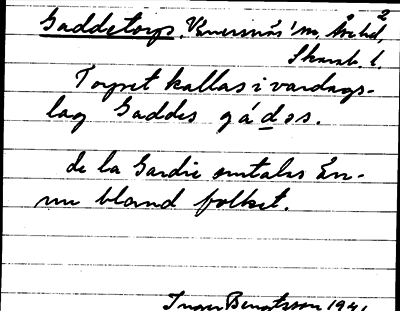 Gaddetorp. Venersnäs' m, Åsbol, 2
Skarab. l.
Torpet kallas i vardags-
lag Gaddes gádəs.
de la Gardie omtalas än-
nu bland folket.
Ivar Bengtsson 1941